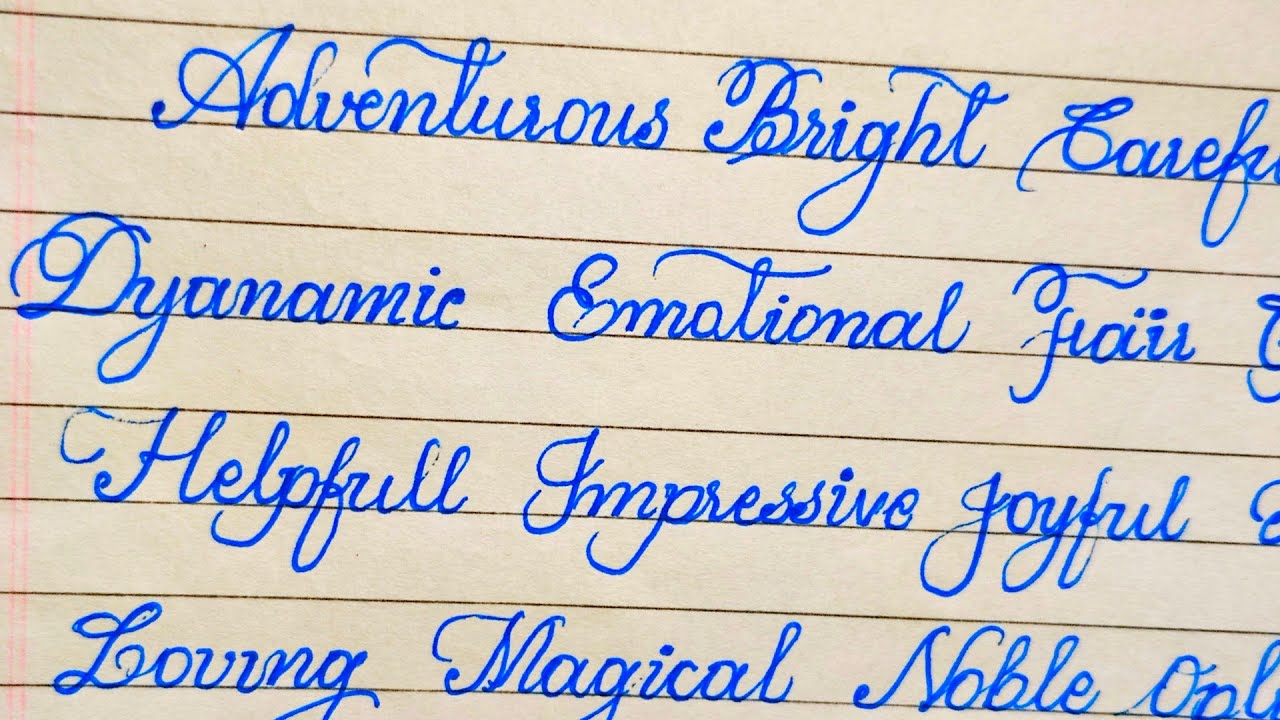 Adventurous Bright Carefu
Dyanamic Emotional Fair
Helpfull Impressive Joyful
Loving Magical Noble